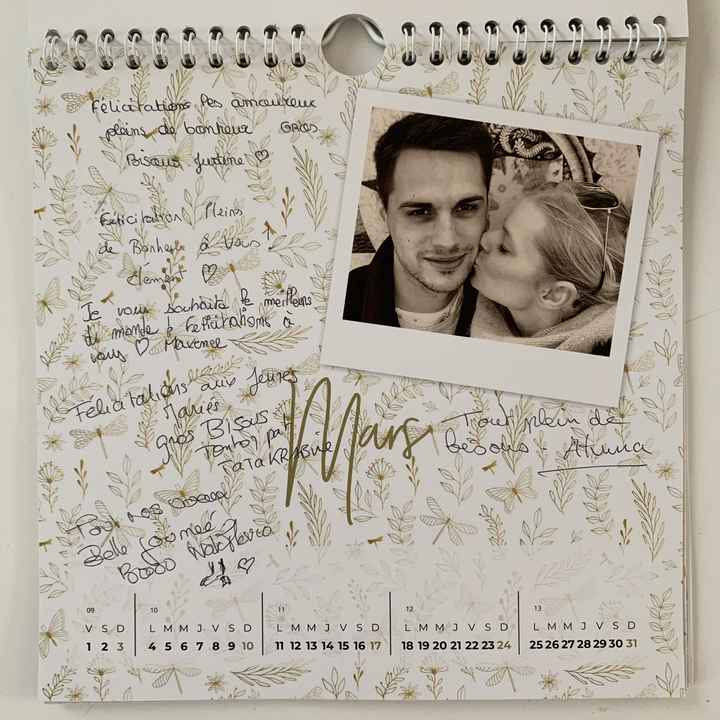 Félicitations Les amoureux
pleins de bonheur GROS
Bisous Justine
Félicitation Pleins
de Bonheur à Vous.
Clement
Je vous souhaite le meilleurs
du monde félicitations à
vous Maxence
Félicitations aux Jeunes
Mariés
gros BISOUS
Tonton pat
TATA KRISTINE
Mars
Tout plein de
bisous -
Pour nos
Belle journée
09
V S D
1 2 3
10
L M M J V S D
4 5 6 7 8 9 10
11
L M M J V S D
11 12 13 14 15 16 17
12
L M M J V S D
18 19 20 21 22 23 24
13
L M M J V S D
25 26 27 28 29 30 31